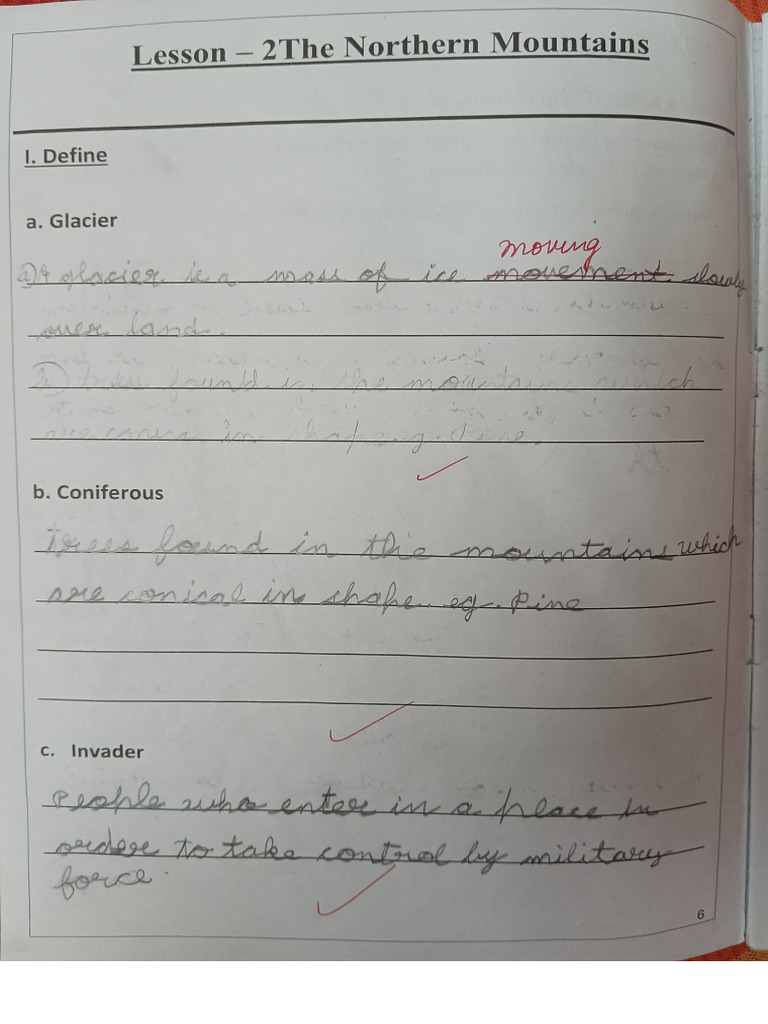 Lesson – 2The Northern Mountains
I. Define
a. Glacier
moving
a) A glacier is a mass of ice movement slowly
over land.
2) trees found in the mountains which
are conical in shape eg. Pine.
b. Coniferous
Trees found in the mountains which
are conical in shape. eg. Pine
c. Invader
People who enter in a place in
order to take control by military
force.
6